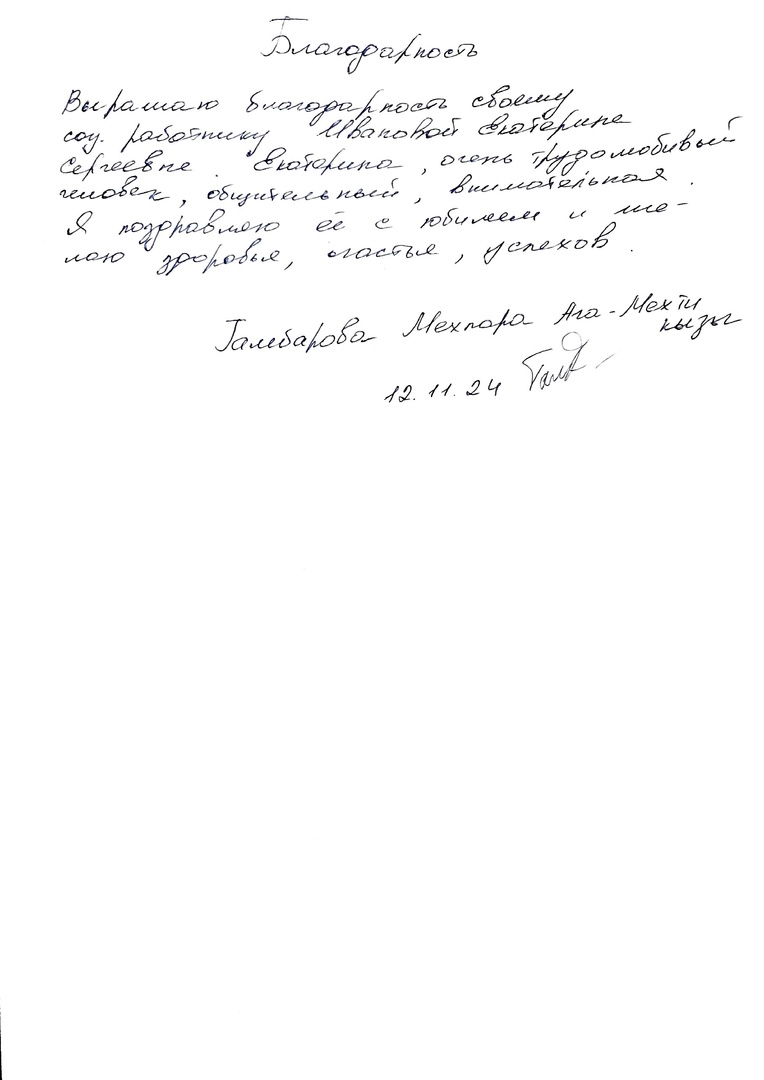 Благодарность
Выражаю благодарность своему
соц. работнику Ивановой Екатерине
Сергеевне. Екатерина, очень трудолюбивый
человек, общительный, внимательная.
Я поздравляю её с юбилеем и же-
лаю здоровья, счастья, успехов.
Гамбарова Мехпара Ага-Мехти
кызы
12.11.24